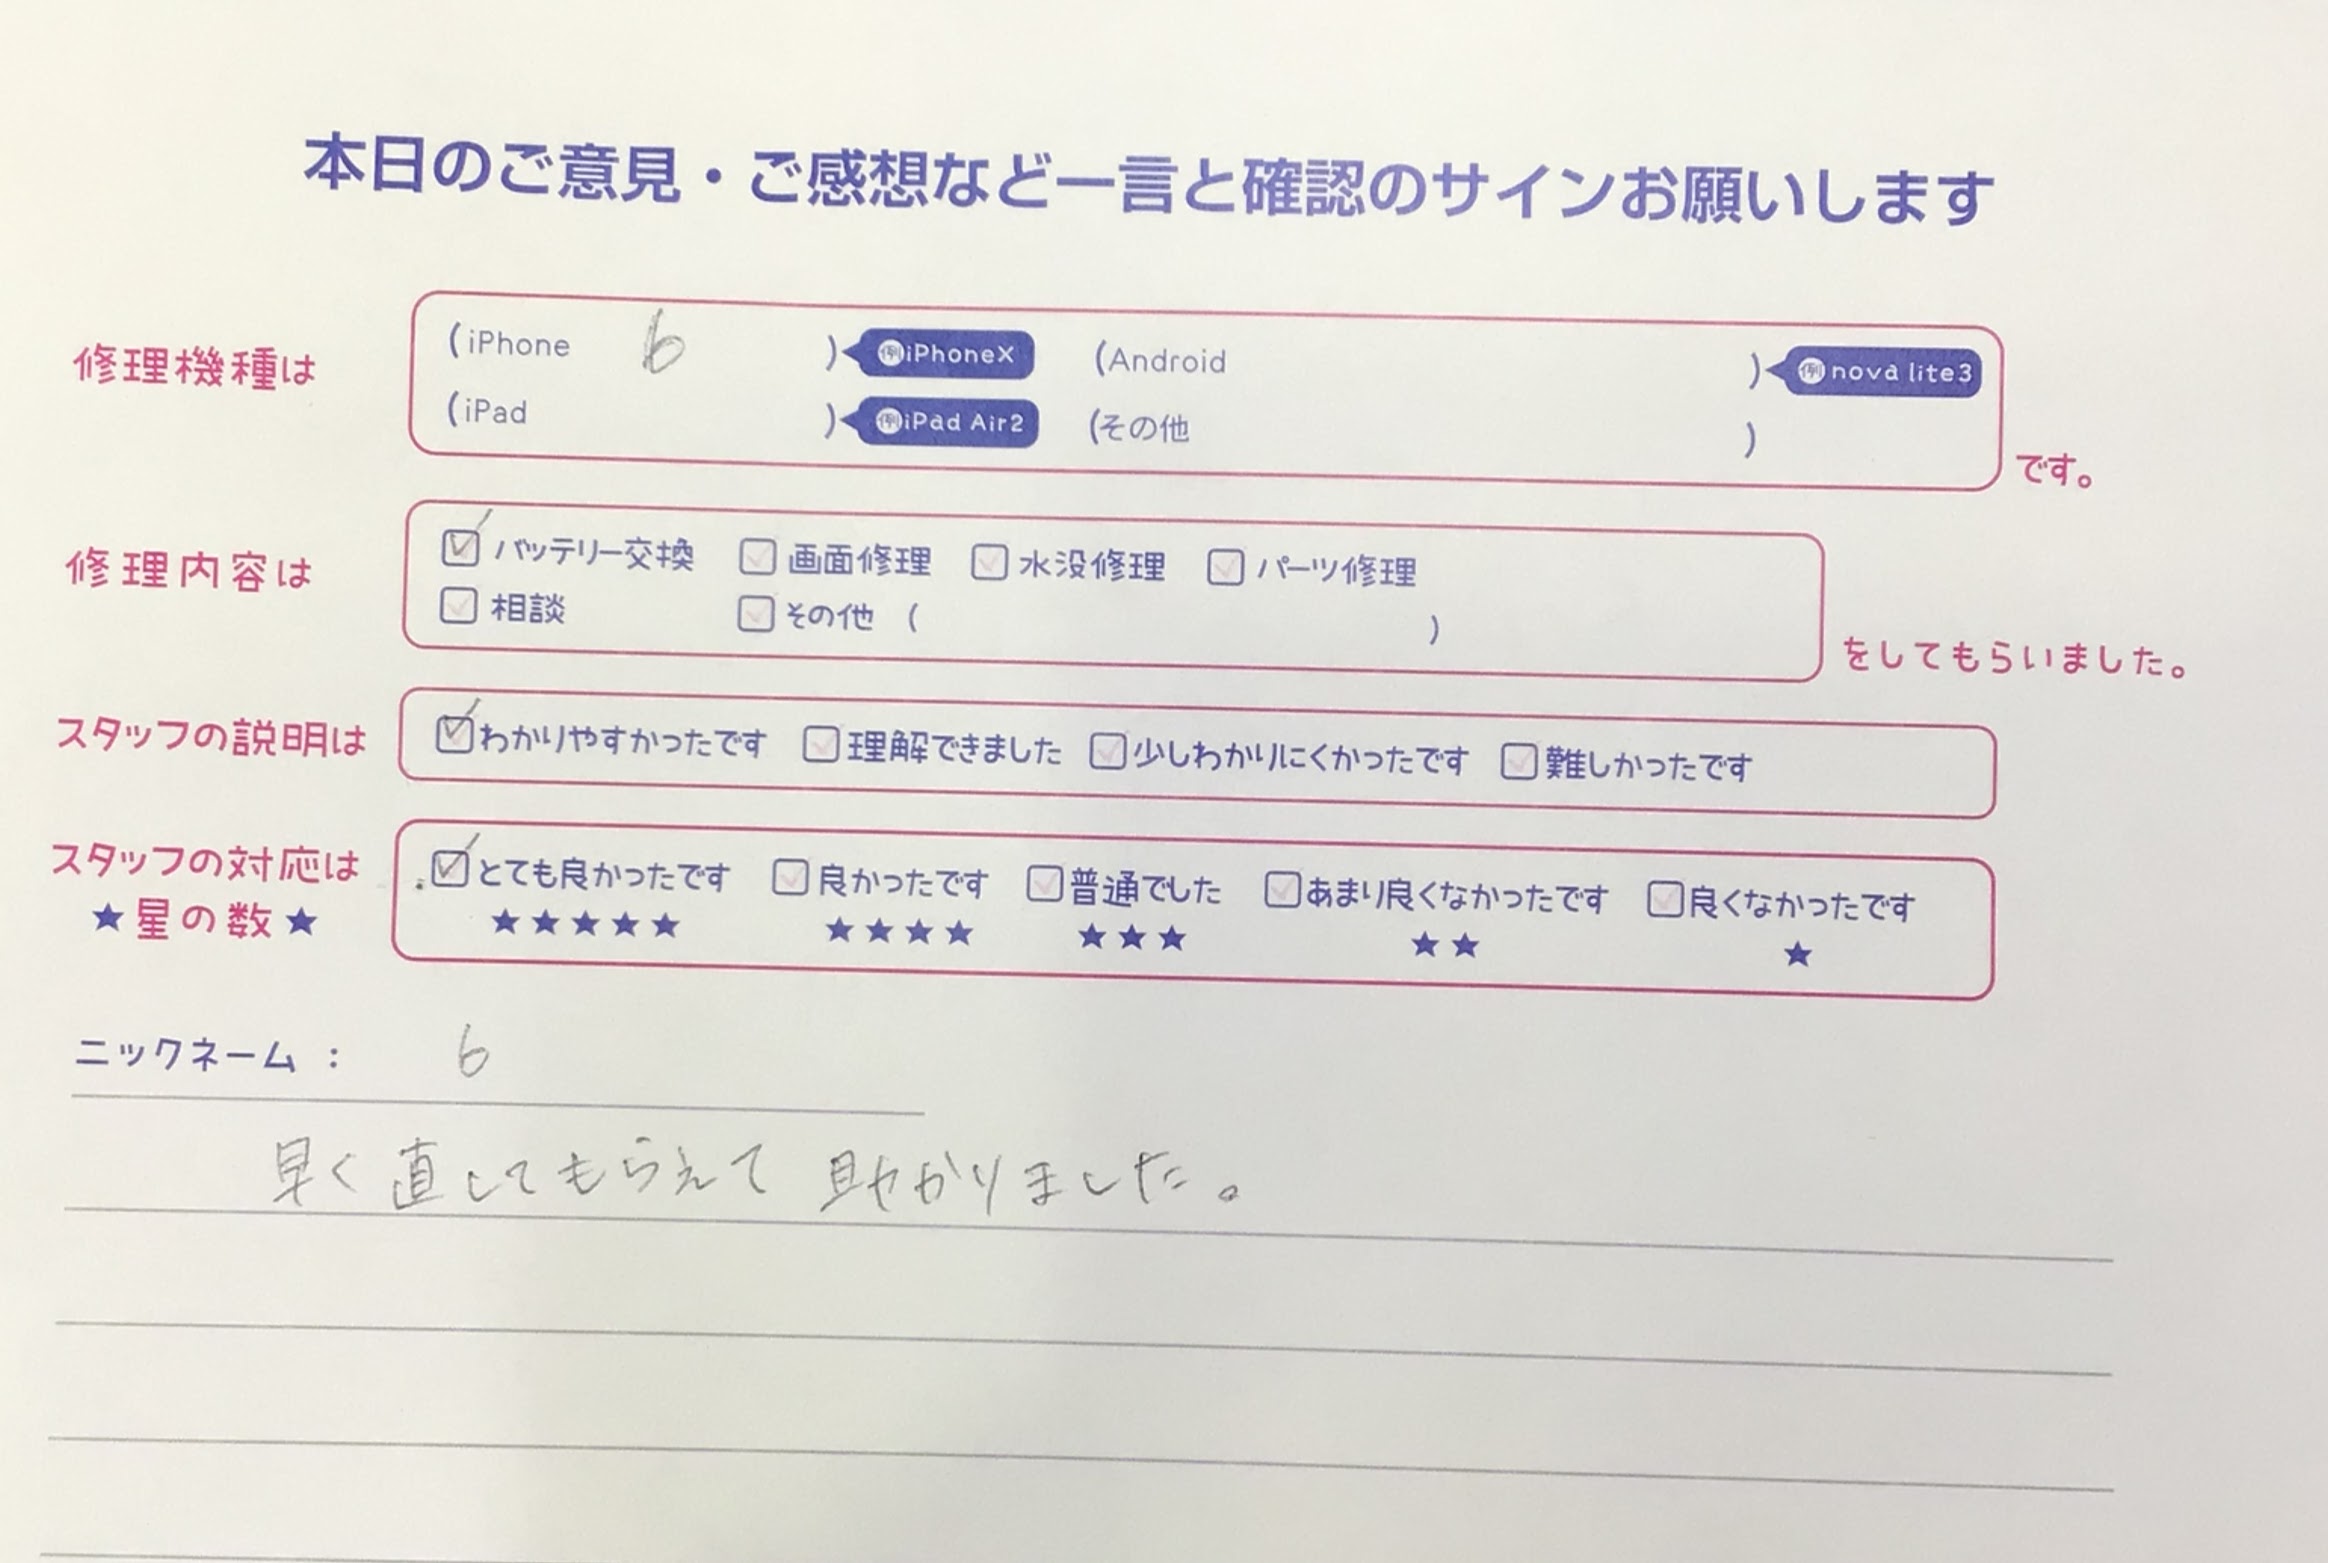 本日のご意見・ご感想など一言と確認のサインお願いします
修理機種は
(iPhone 6 ) 例iPhoneX (Android ) 例nova lite3
(iPad ) 例iPad Air2 (その他 )
です。
修理内容は
☑バッテリー交換 ☐画面修理 ☐水没修理 ☐パーツ修理
☐相談 ☐その他 ( )
をしてもらいました。
スタッフの説明は
☑わかりやすかったです ☐理解できました ☐少しわかりにくかったです ☐難しかったです
スタッフの対応は
★星の数★
☑とても良かったです ☐良かったです ☐普通でした ☐あまり良くなかったです ☐良くなかったです
★★★★★ ★★★★ ★★★ ★★ ★
ニックネーム : 6
早く直してもらえて 助かりました。